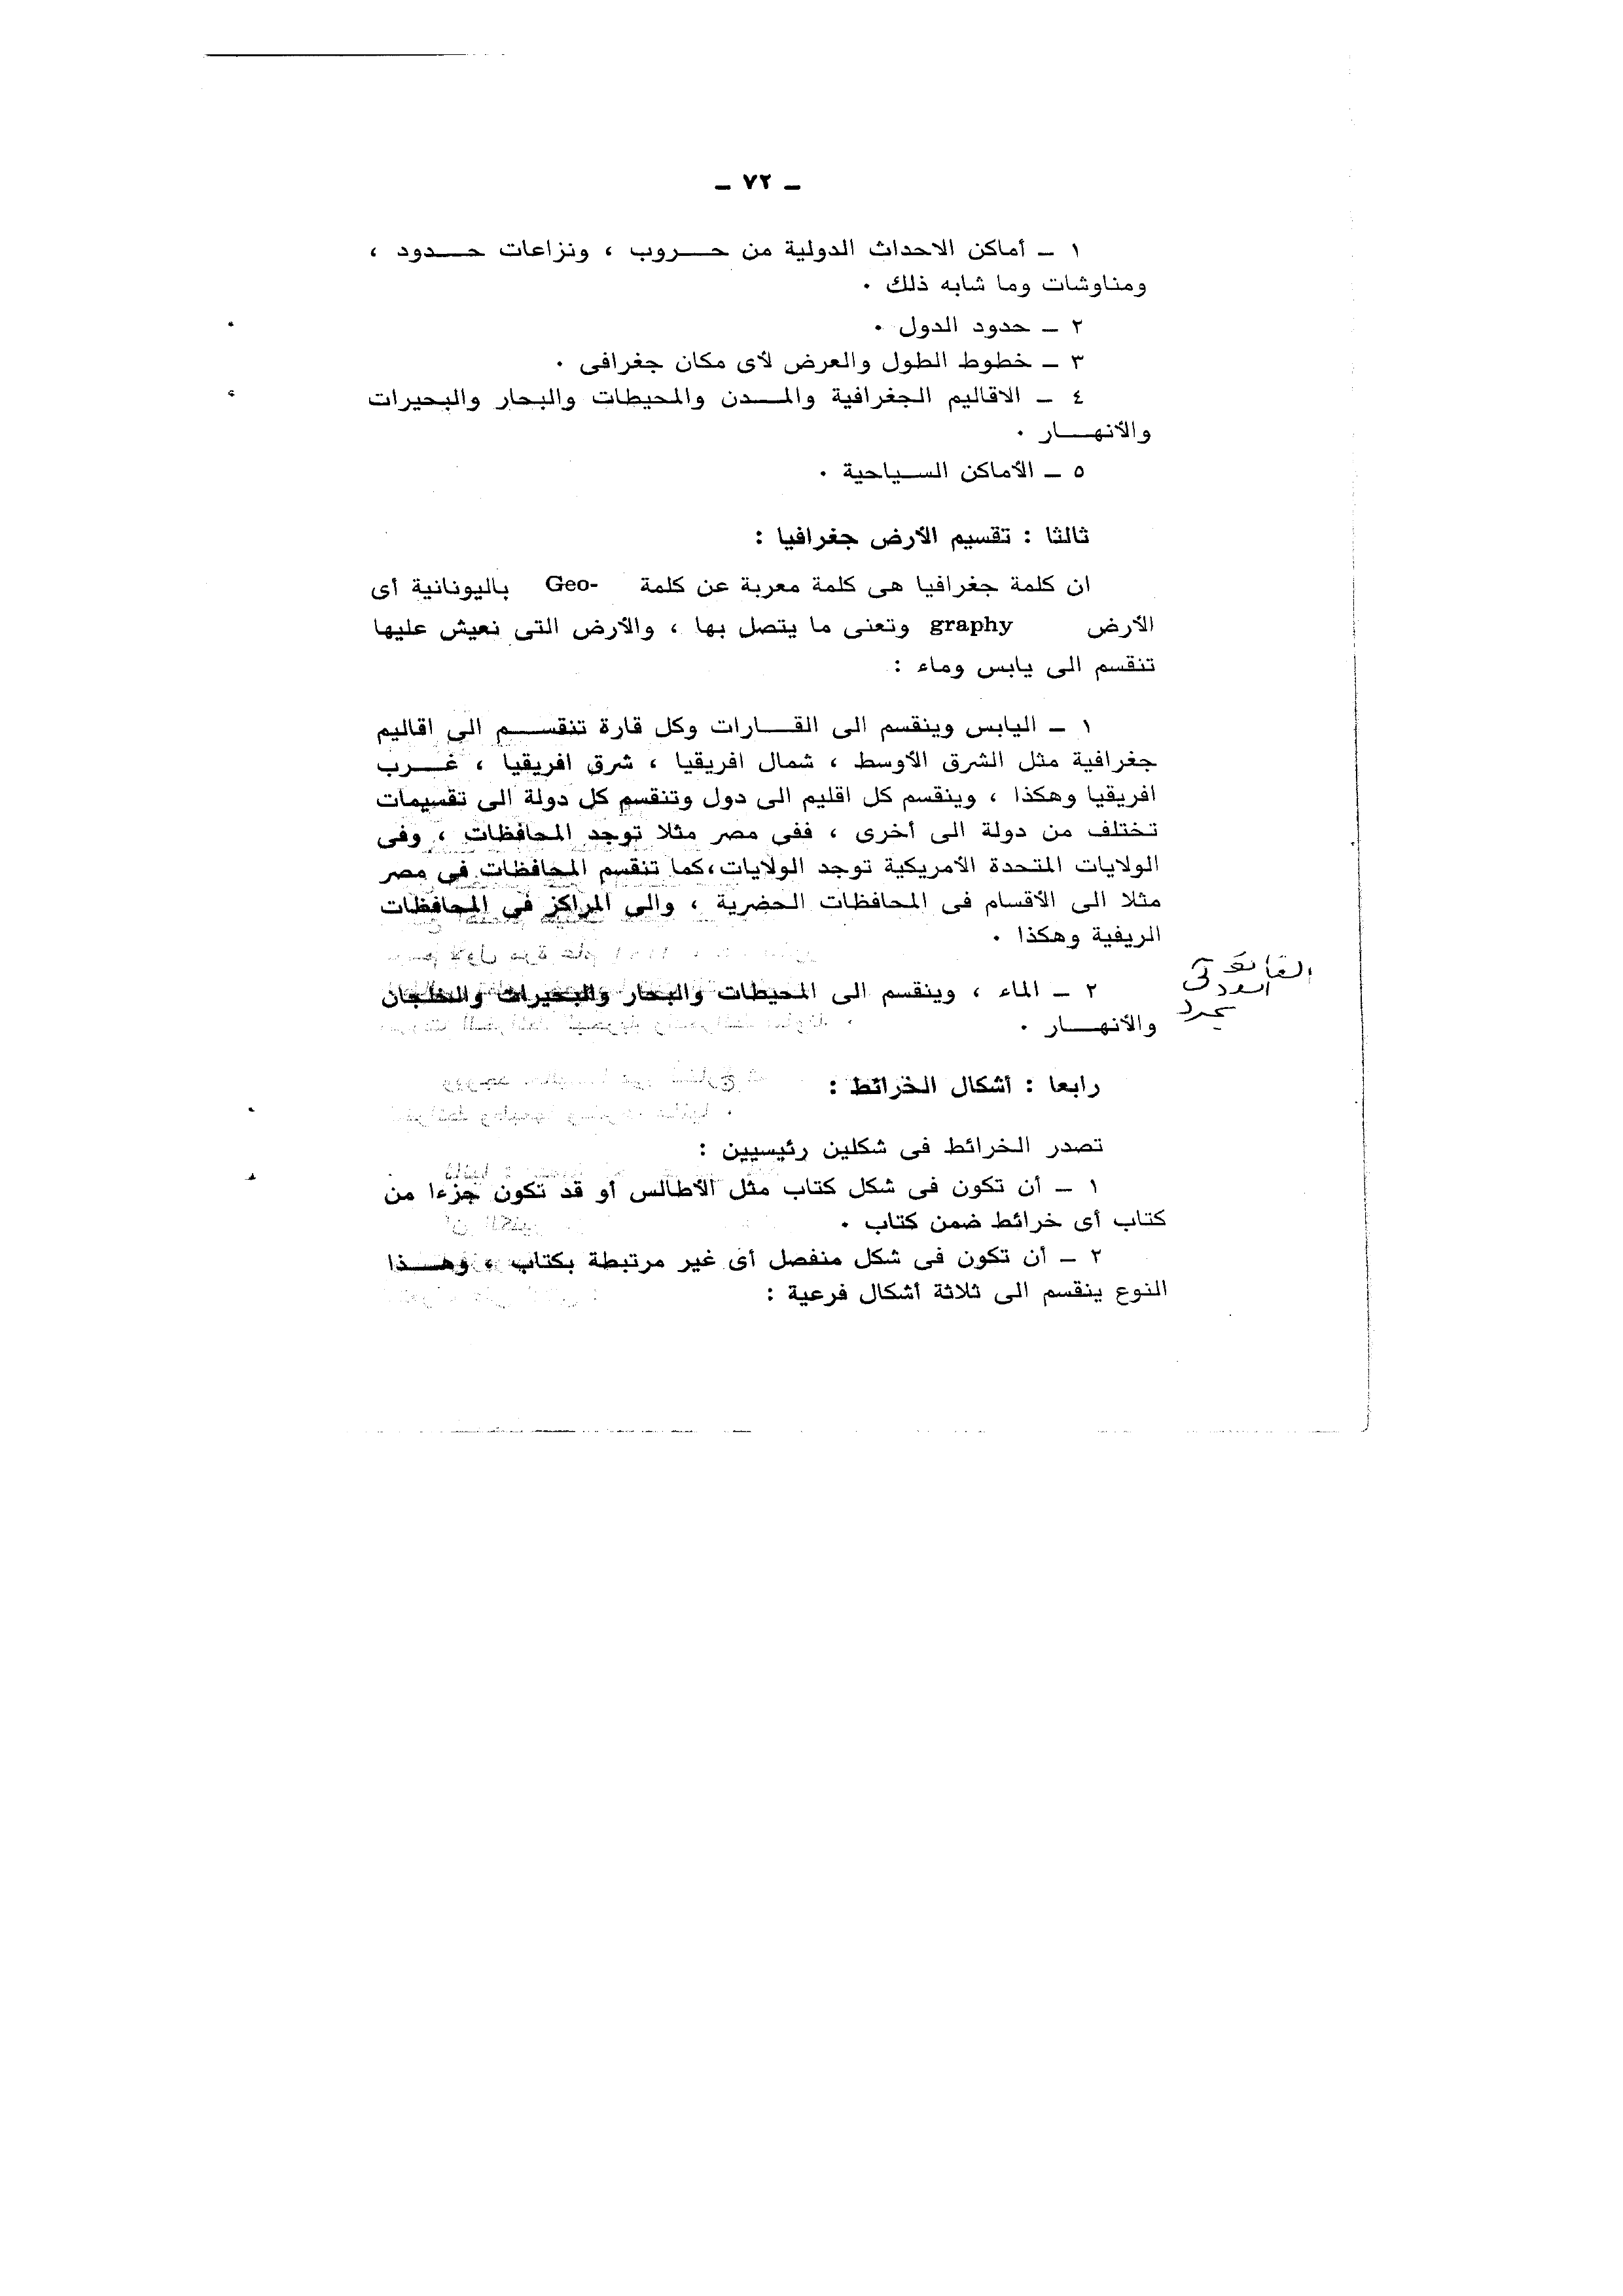 ـ ٧٢ ـ
١ ـ أماكن الاحداث الدولية من حـــروب ، ونزاعات حـــدود ،
ومناوشات وما شابه ذلك ٠
٢ ـ حدود الدول ٠
٣ ـ خطوط الطول والعرض لأى مكان جغرافى ٠
٤ ـ الاقاليم الجغرافية والمـــدن والمحيطات والبحار والبحيرات
والأنهـــار ٠
٥ ـ الأماكن الســياحية ٠
ثالثا : تقسيم الأرض جغرافيا :
ان كلمة جغرافيا هى كلمة معربة عن كلمة Geo- باليونانية أى
الأرض graphy وتعنى ما يتصل بها ، والأرض التى نعيش عليها
تنقسم الى يابس وماء :
١ ـ اليابس وينقسم الى القـــارات وكل قارة تنقســـم الى اقاليم
جغرافية مثل الشرق الأوسط ، شمال افريقيا ، شرق افريقيا ، غـــرب
افريقيا وهكذا ، وينقسم كل اقليم الى دول وتنقسم كل دولة الى تقسيمات
تختلف من دولة الى أخرى ، ففى مصر مثلا توجد المحافظات ، وفى
الولايات المتحدة الأمريكية توجد الولايات،كما تنقسم المحافظات فى مصر
مثلا الى الأقسام فى المحافظات الحضرية ، والى المراكز فى المحافظات
الريفية وهكذا ٠
٢ ـ الماء ، وينقسم الى المحيطات والبحار والبحيرات والخلجان
والأنهـــار ٠
رابعا : أشكال الخرائط :
تصدر الخرائط فى شكلين رئيسيين :
١ ـ أن تكون فى شكل كتاب مثل الأطالس أو قد تكون جزءا من
كتاب أى خرائط ضمن كتاب ٠
٢ ـ أن تكون فى شكل منفصل أى غير مرتبطة بكتاب ، وهـــذا
النوع ينقسم الى ثلاثة أشكال فرعية :